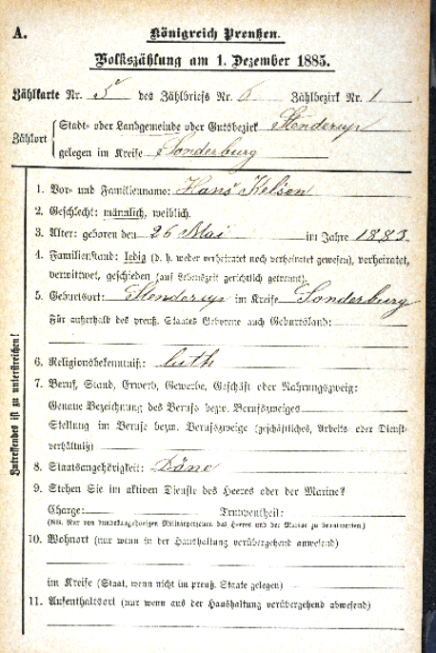 A.
Königreich Preußen.
Volkszählung am 1. Dezember 1885.
Zählkarte Nr. 5 des Zählbriefs Nr. 6 Zählbezirk Nr. 1
Zählort
Stadt- oder Landgemeinde oder Gutsbezirk Stenderup
gelegen im Kreise Sonderburg
Zutreffendes ist zu unterstreichen!
1. Vor- und Familienname: Hans
2. Geschlecht: männlich, weiblich.
3. Alter: geboren den 26 Mai im Jahre 1883
4. Familienstand: ledig (d. h. weder verheiratet noch verheiratet gewesen), verheiratet,
verwittwet, geschieden (auf Lebenszeit gerichtlich getrennt).
5. Geburtsort: Stenderup im Kreise Sonderburg
Für außerhalb des preuß. Staates Geborene auch Geburtsland:
6. Religionsbekenntniß: luth
7. Beruf, Stand, Erwerb, Gewerbe, Geschäft oder Nahrungszweig:
Genaue Bezeichnung des Berufs bezw. Berufszweiges
Stellung im Berufe bezw. Berufszweige (geschäftliches, Arbeits- oder Dienst-
verhältniß)
8. Staatsangehörigkeit: Däne
9. Stehen Sie im aktiven Dienste des Heeres oder der Marine?
Charge: Truppentheil:
(NB. Nur von bundesangehörigen Militärpersonen des Heeres und der Marine zu beantworten)
10. Wohnort (nur wenn in der Haushaltung vorübergehend anwesend)
im Kreise (Staat, wenn nicht im preuß. Staate gelegen)
11. Aufenthaltsort (nur wenn aus der Haushaltung vorübergehend abwesend)